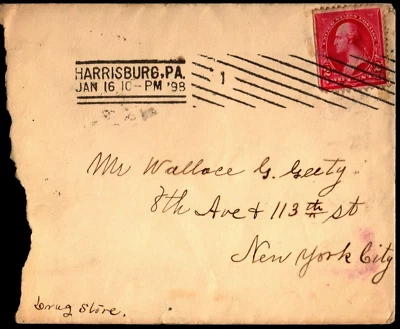 HARRISBURG, PA.
JAN 16 10-PM '98
1
Mr Wallace G. Geety
8th Ave & 113th st
New York City
Drug Store.